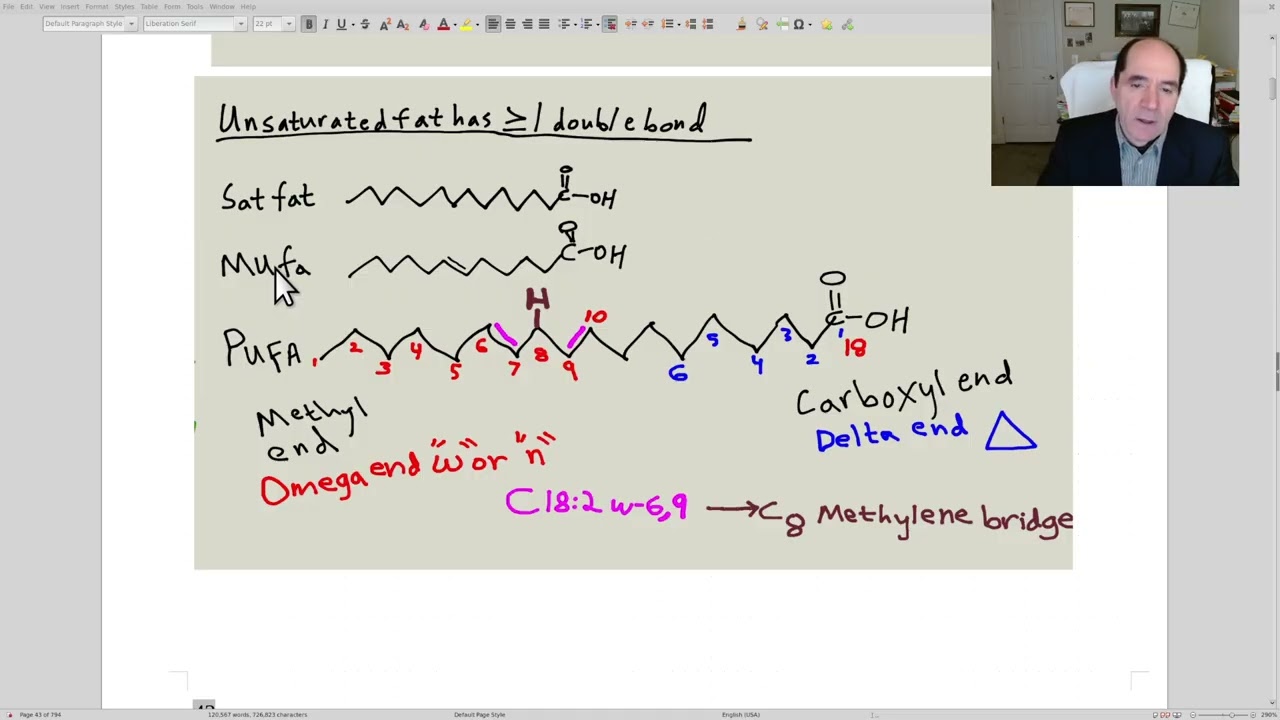 File Edit View Insert Format Styles Table Form Tools Window Help
Default Paragraph Style Liberation Serif 22 pt
Unsaturated fat has ≥1 double bond
Sat fat O C-OH
Mufa O C-OH
H
PUFA 1 2 3 4 5 6 7 8 9 10 6 5 4 3 2 1 18 O C-OH
Methyl end
Carboxyl end
Delta end △
Omega end "ω" or "n"
C18:2 ω-6,9 → C8 Methylene bridge
Page 43 of 794 120,567 words, 726,823 characters Default Page Style English (USA) 290%